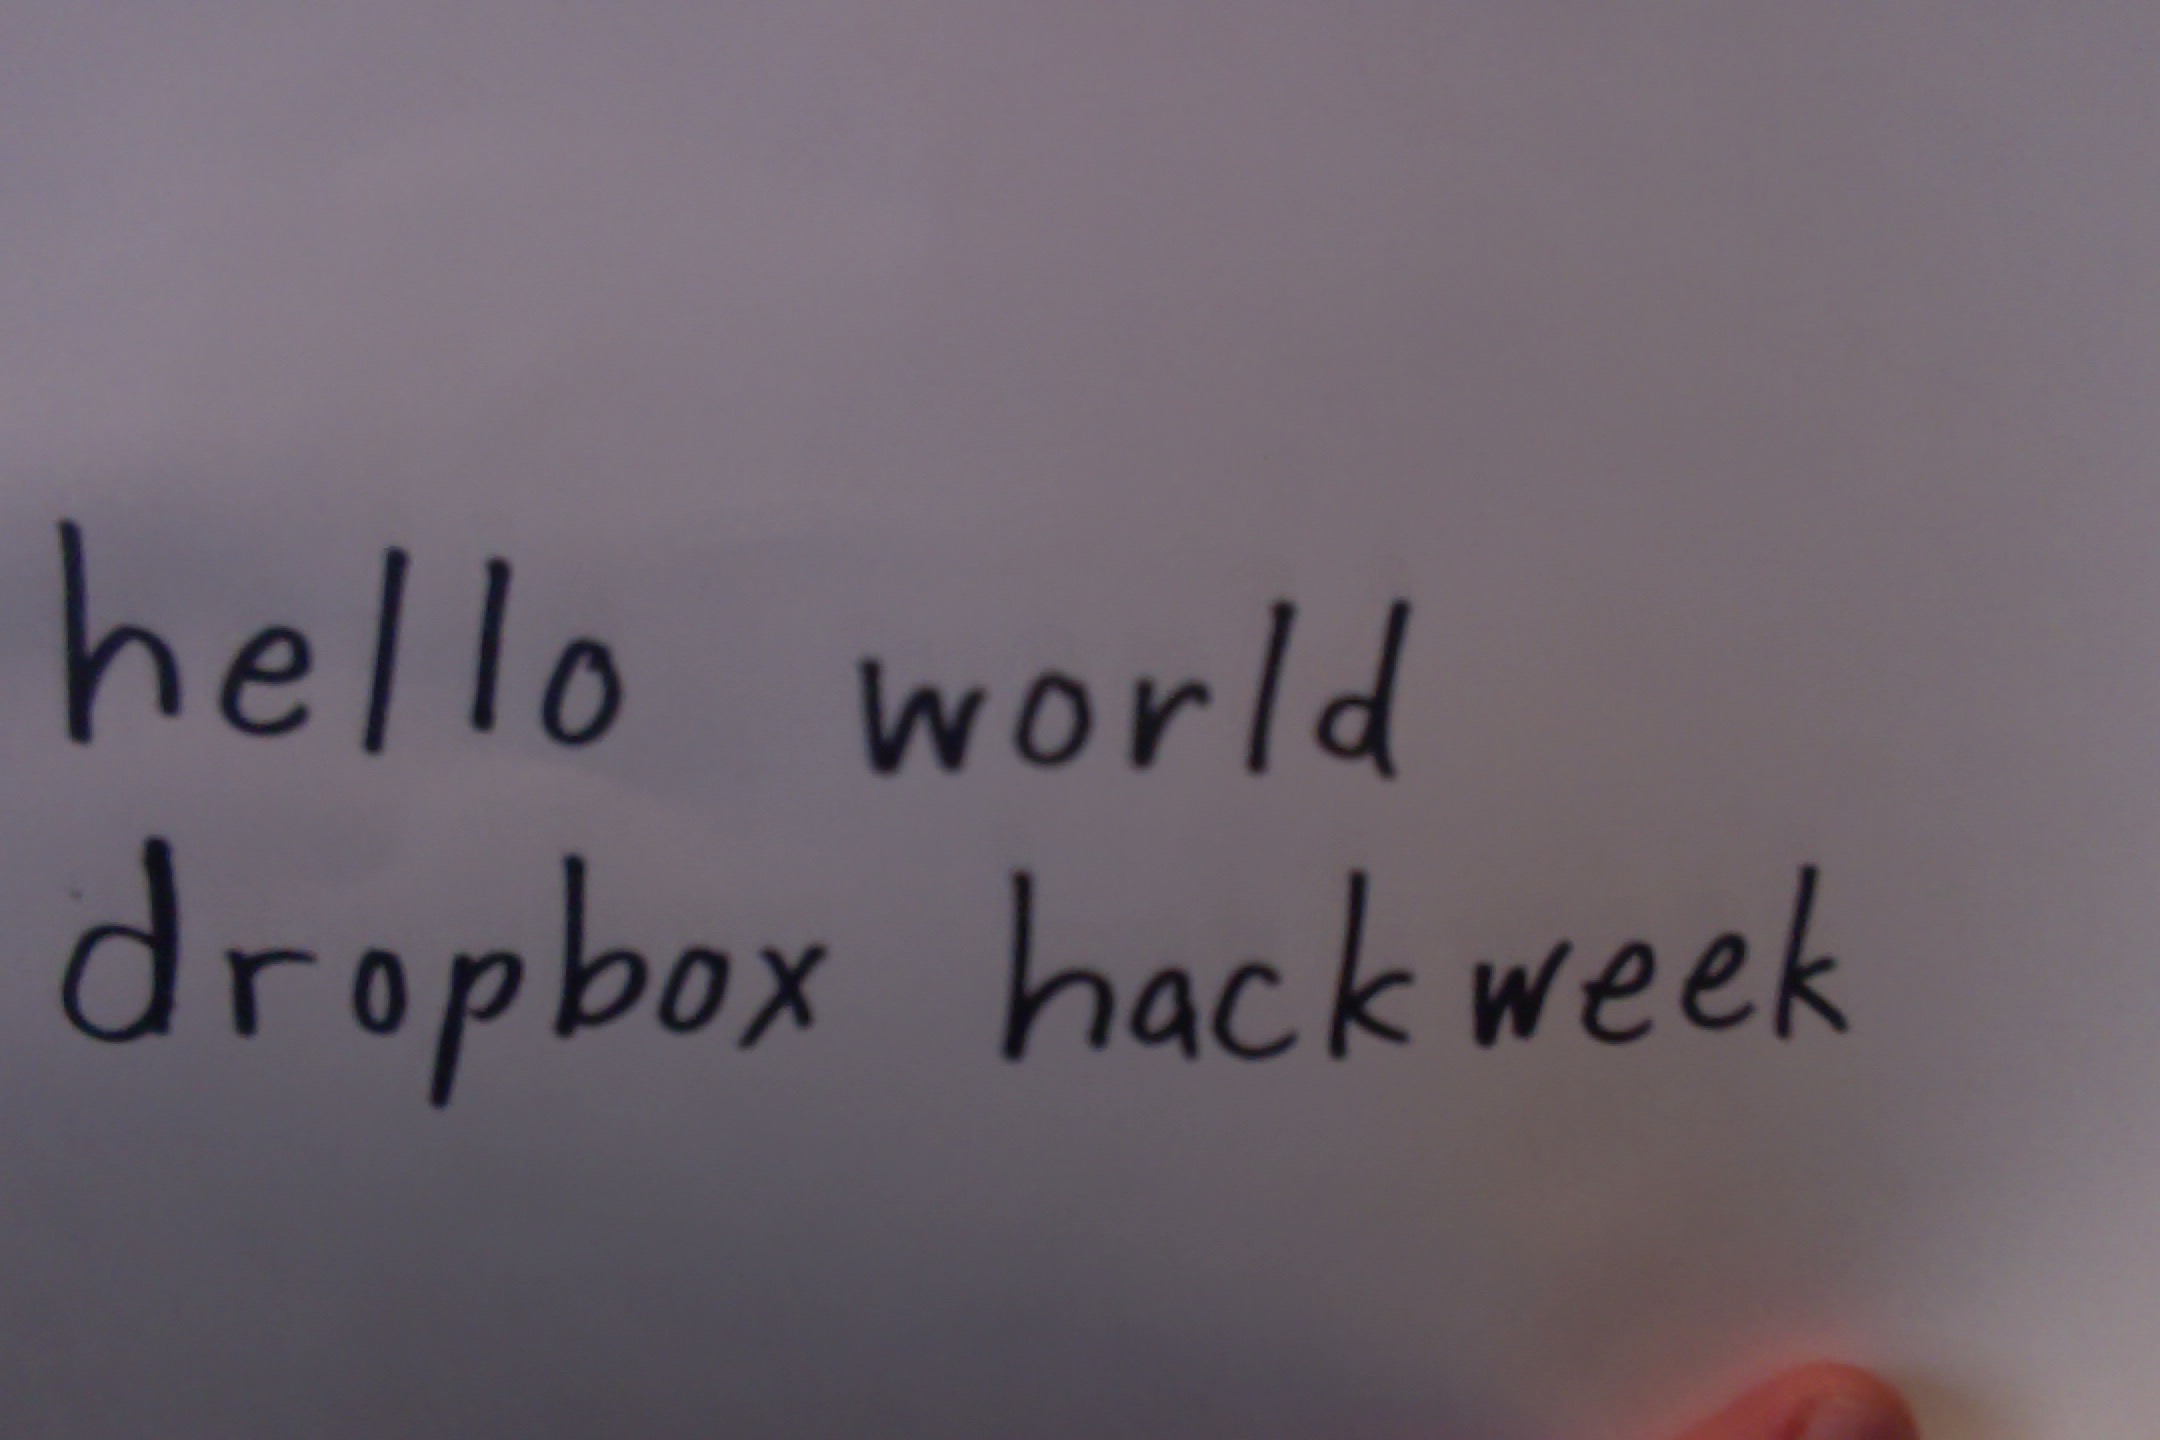 hello world
dropbox hackweek